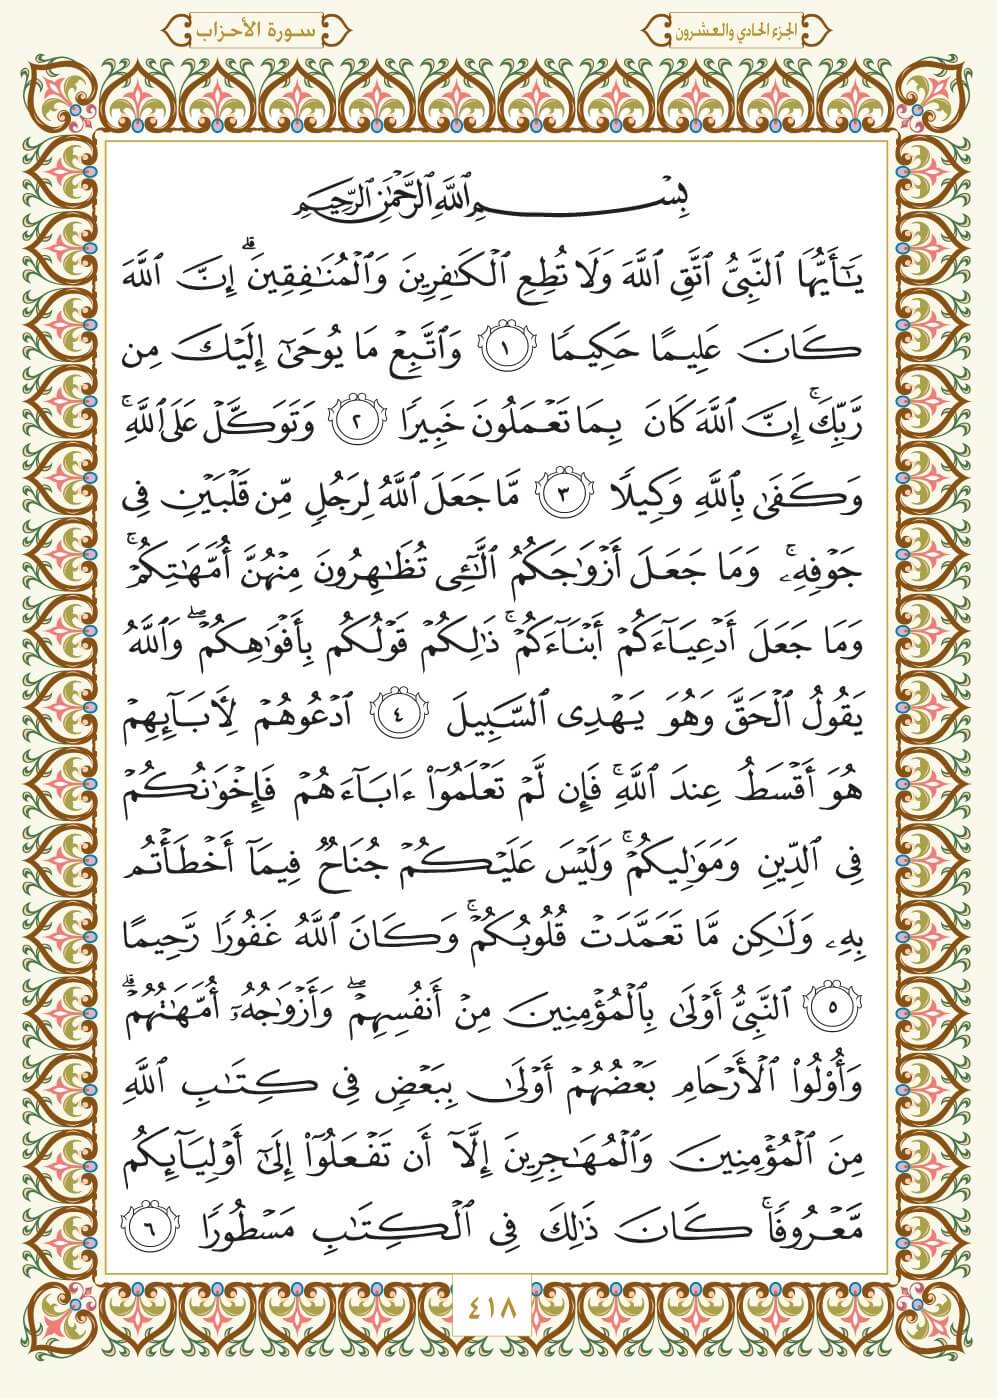 الجزء الحادي والعشرون
سورة الأحزاب
بِسْمِ ٱللَّهِ ٱلرَّحْمَٰنِ ٱلرَّحِيمِ
يَٰٓأَيُّهَا ٱلنَّبِىُّ ٱتَّقِ ٱللَّهَ وَلَا تُطِعِ ٱلْكَٰفِرِينَ وَٱلْمُنَٰفِقِينَ ۗ إِنَّ ٱللَّهَ
كَانَ عَلِيمًا حَكِيمًا ١ وَٱتَّبِعْ مَا يُوحَىٰٓ إِلَيْكَ مِن
رَّبِّكَ ۚ إِنَّ ٱللَّهَ كَانَ بِمَا تَعْمَلُونَ خَبِيرًا ٢ وَتَوَكَّلْ عَلَى ٱللَّهِ ۚ
وَكَفَىٰ بِٱللَّهِ وَكِيلًا ٣ مَّا جَعَلَ ٱللَّهُ لِرَجُلٍ مِّن قَلْبَيْنِ فِى
جَوْفِهِۦ ۚ وَمَا جَعَلَ أَزْوَٰجَكُمُ ٱلَّٰٓـِٔى تُظَٰهِرُونَ مِنْهُنَّ أُمَّهَٰتِكُمْ ۚ
وَمَا جَعَلَ أَدْعِيَآءَكُمْ أَبْنَآءَكُمْ ۚ ذَٰلِكُمْ قَوْلُكُم بِأَفْوَٰهِكُمْ ۖ وَٱللَّهُ
يَقُولُ ٱلْحَقَّ وَهُوَ يَهْدِى ٱلسَّبِيلَ ٤ ٱدْعُوهُمْ لِأَبَآئِهِمْ
هُوَ أَقْسَطُ عِندَ ٱللَّهِ ۚ فَإِن لَّمْ تَعْلَمُوٓا۟ ءَابَآءَهُمْ فَإِخْوَٰنُكُمْ
فِى ٱلدِّينِ وَمَوَٰلِيكُمْ ۚ وَلَيْسَ عَلَيْكُمْ جُنَاحٌ فِيمَآ أَخْطَأْتُم
بِهِۦ وَلَٰكِن مَّا تَعَمَّدَتْ قُلُوبُكُمْ ۚ وَكَانَ ٱللَّهُ غَفُورًا رَّحِيمًا
٥ ٱلنَّبِىُّ أَوْلَىٰ بِٱلْمُؤْمِنِينَ مِنْ أَنفُسِهِمْ ۖ وَأَزْوَٰجُهُۥٓ أُمَّهَٰتُهُمْ ۗ
وَأُو۟لُوا۟ ٱلْأَرْحَامِ بَعْضُهُمْ أَوْلَىٰ بِبَعْضٍ فِى كِتَٰبِ ٱللَّهِ
مِنَ ٱلْمُؤْمِنِينَ وَٱلْمُهَٰجِرِينَ إِلَّآ أَن تَفْعَلُوٓا۟ إِلَىٰٓ أَوْلِيَآئِكُم
مَّعْرُوفًا ۚ كَانَ ذَٰلِكَ فِى ٱلْكِتَٰبِ مَسْطُورًا ٦
٤١٨